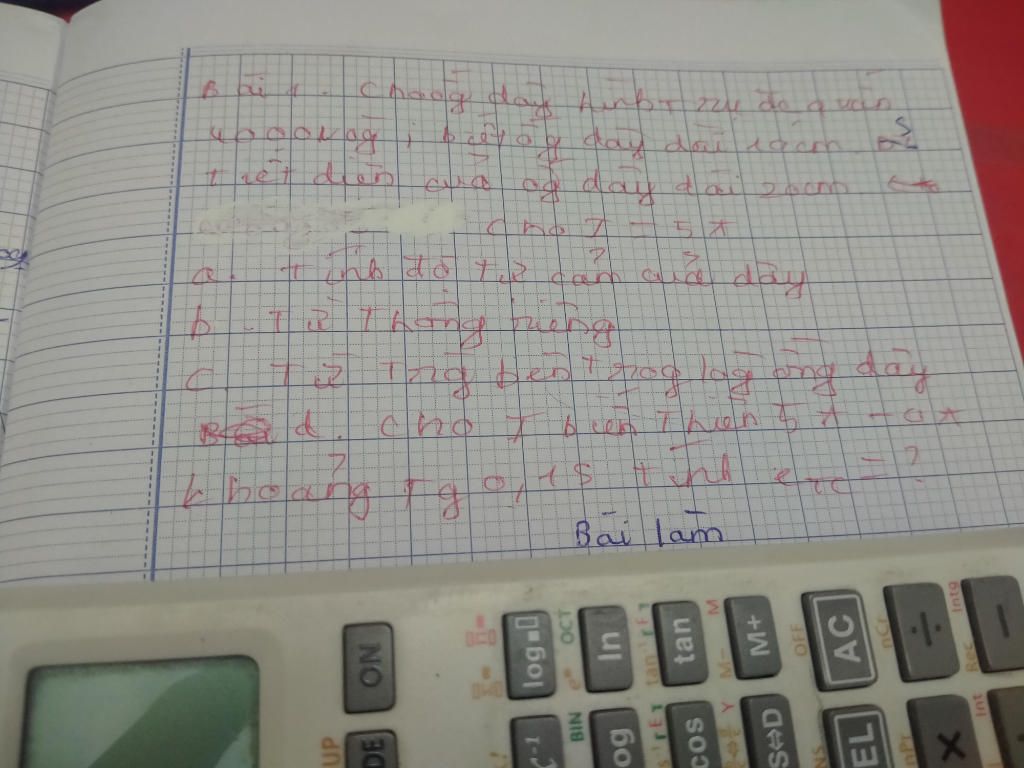 Bài 1. Cho ốg dây hình trụ do quấn
4000 vòg, biết ốg dây dài 10cm
tiết diện của ốg dây dài 20cm
cho I = 5A
a. Tính độ tự cảm của dây
b. Từ Thông riêng
c. Từ Trg bên Trog lòg ống dây
d. Cho I biến Thiên 5A - 0A
khoảng Tg 0,1s tính eTC = ?
Bài làm
ON
log
ln
tan
M+
AC
÷
−
OCT
M
M−
OFF
nCr
Rec
Intg
UP
BIN
cos
S⇔D
Y
×
Int